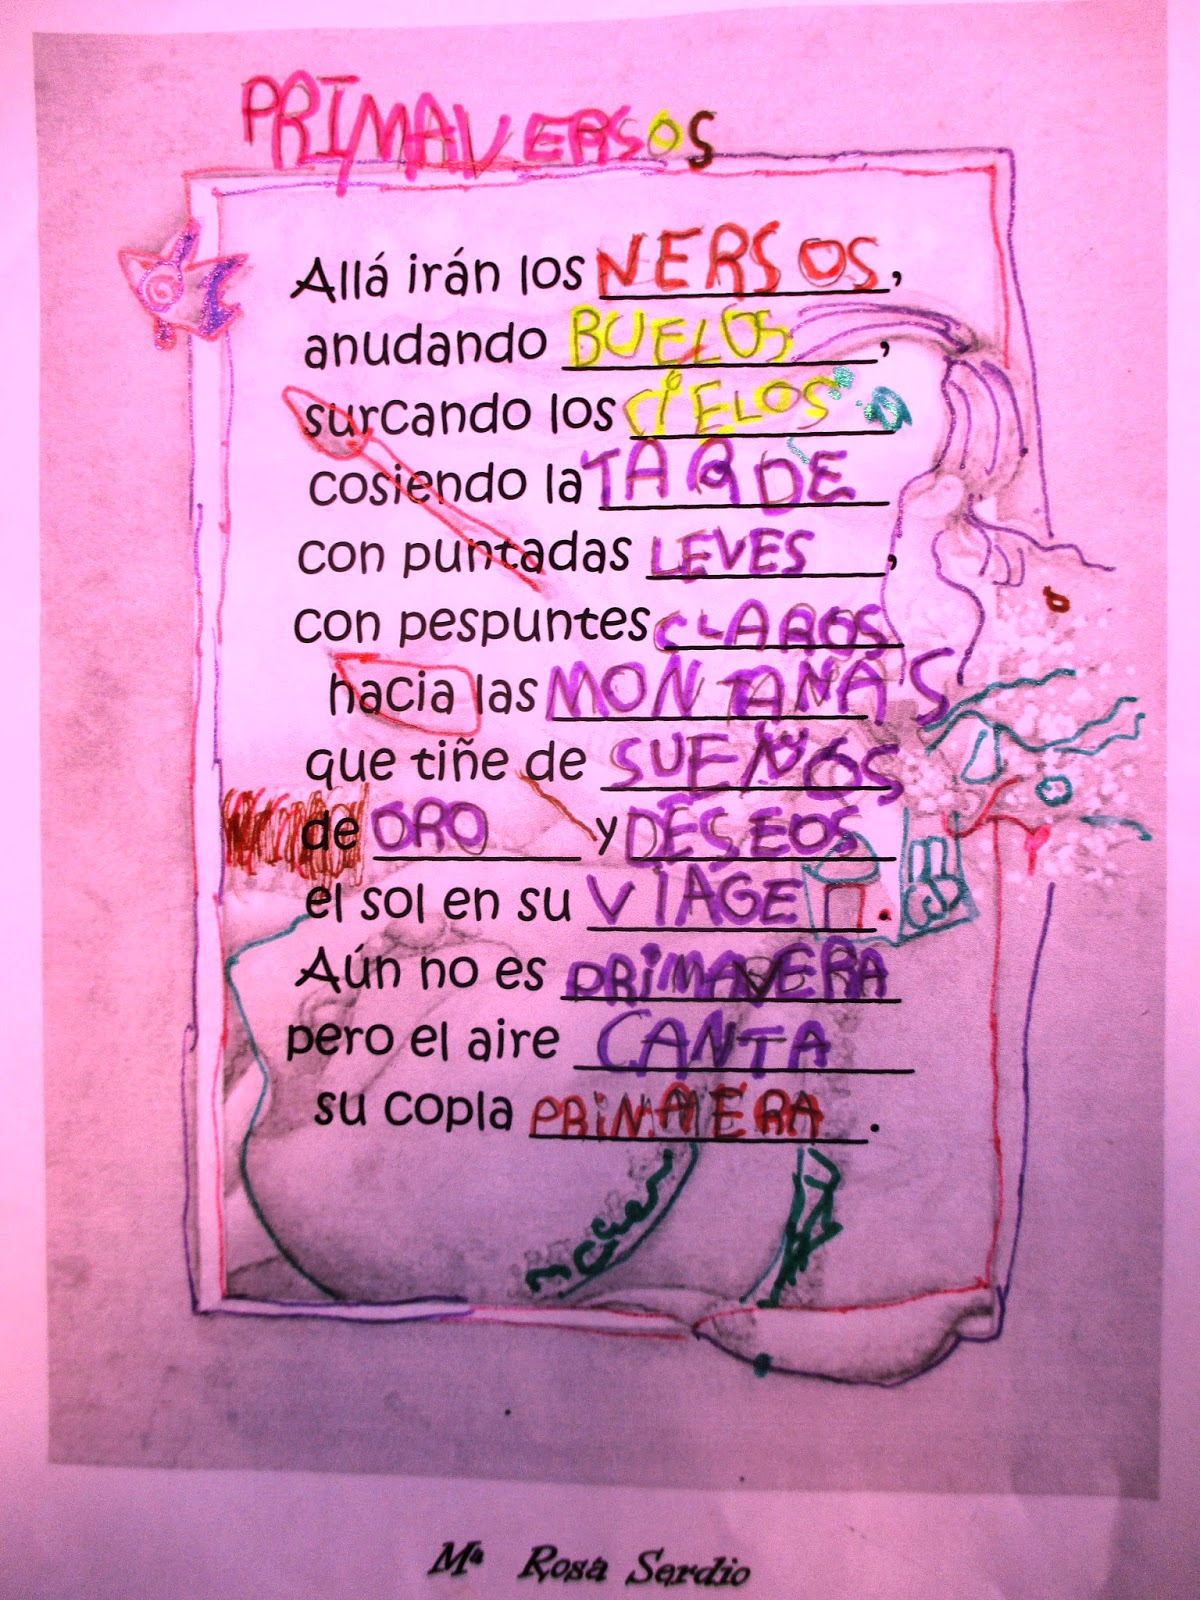 PRIMAVERSOS
Allá irán los NERSOS,
anudando BUELOS,
surcando los CiELOS
cosiendo la TARDE
con puntadas LEVES,
con pespuntes CLAROS
hacia las MONTANAS
que tiñe de SUEÑOS
de ORO y DESEOS
el sol en su VIAGE.
Aún no es PRiMAVERA
pero el aire CANTA
su copla PRiMAVERA.
Mª Rosa Serdio